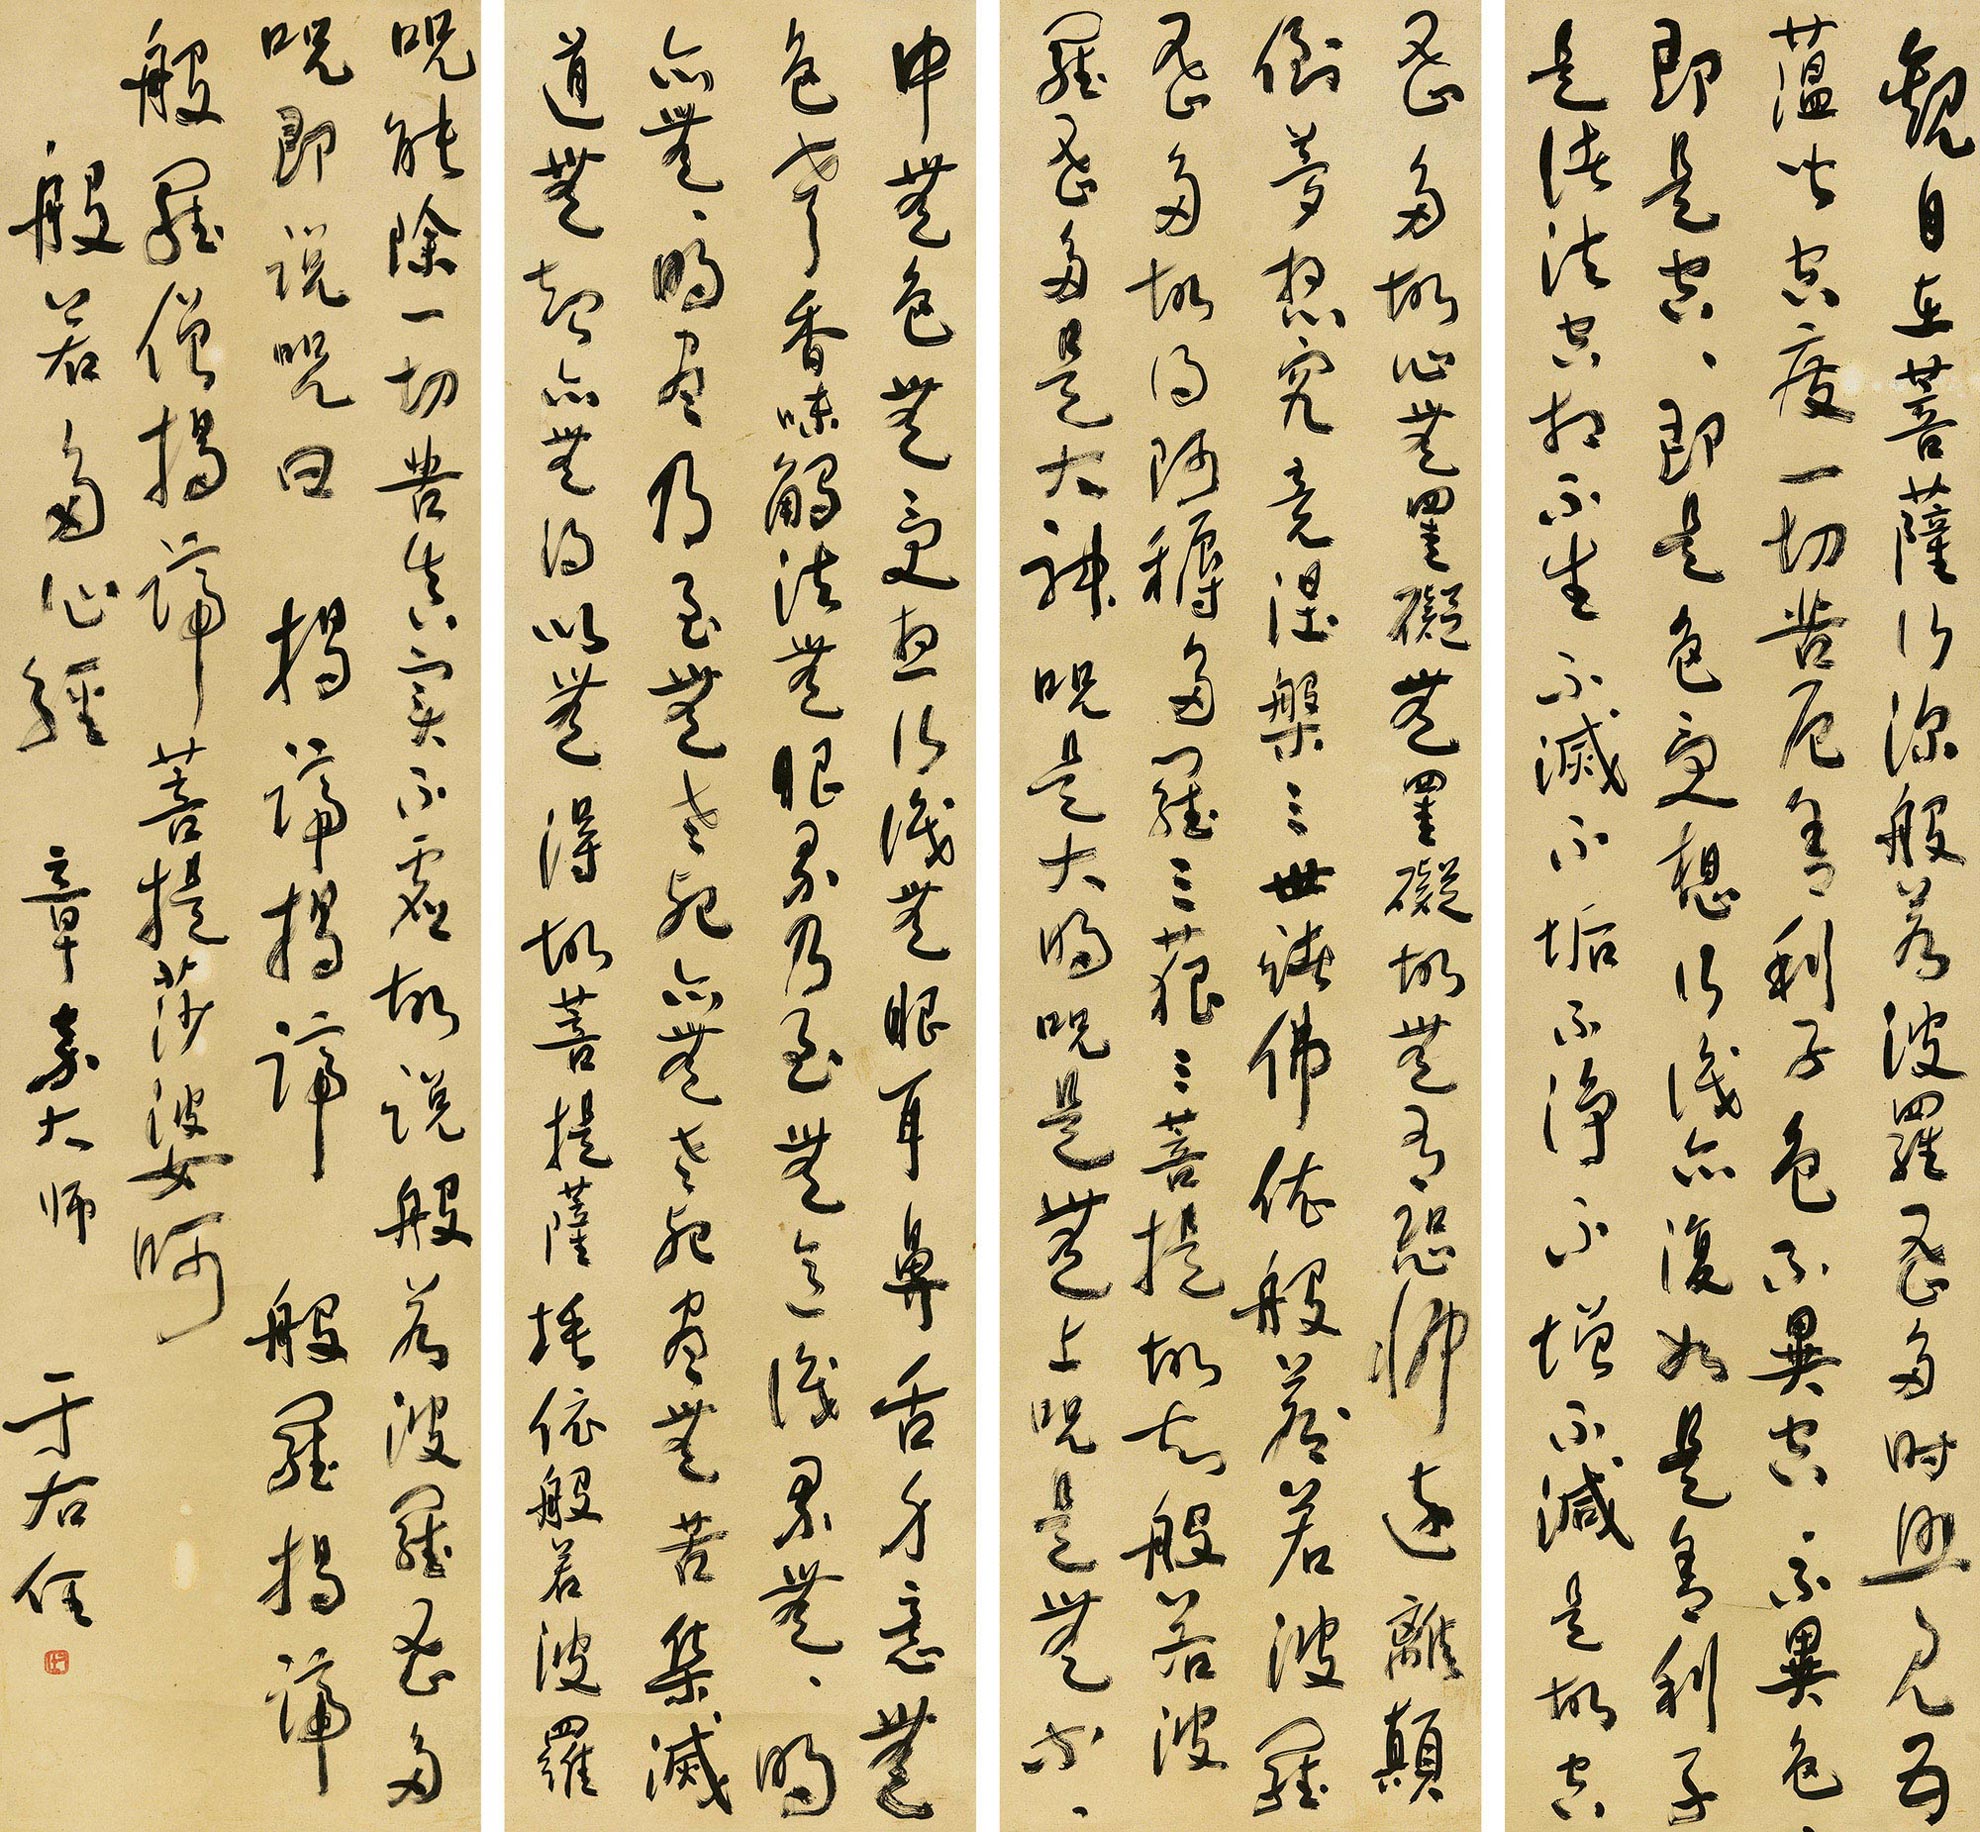 觀自在菩薩行深般若波羅蜜多時照見五
蘊皆空度一切苦厄舍利子色不異空、不異色、
即是空、即是色受想行識亦復如是舍利子
是諸法空相不生不滅不垢不淨不增不減是故空
蜜多故心無罣礙無罣礙故無有恐怖遠離顛
倒夢想究竟涅槃三世諸佛依般若若波羅
蜜多故得阿耨多羅三藐三菩提故知般若波
羅蜜多是大神呪是大明呪是無上呪是無等、
中無色無受想行識無眼耳鼻舌身意無
色聲香味觸法無眼界乃至無意識界無、明
亦無、明盡乃至無老死亦無老死盡無苦集滅
道無智亦無得以無得故菩提薩埵依般若波羅
呪能除一切苦真實不虛故説般若波羅蜜多
呪即説呪曰 揭諦揭諦 般羅揭諦
般羅僧揭諦 菩提莎婆訶
般若多心經 章嘉大師 于右任